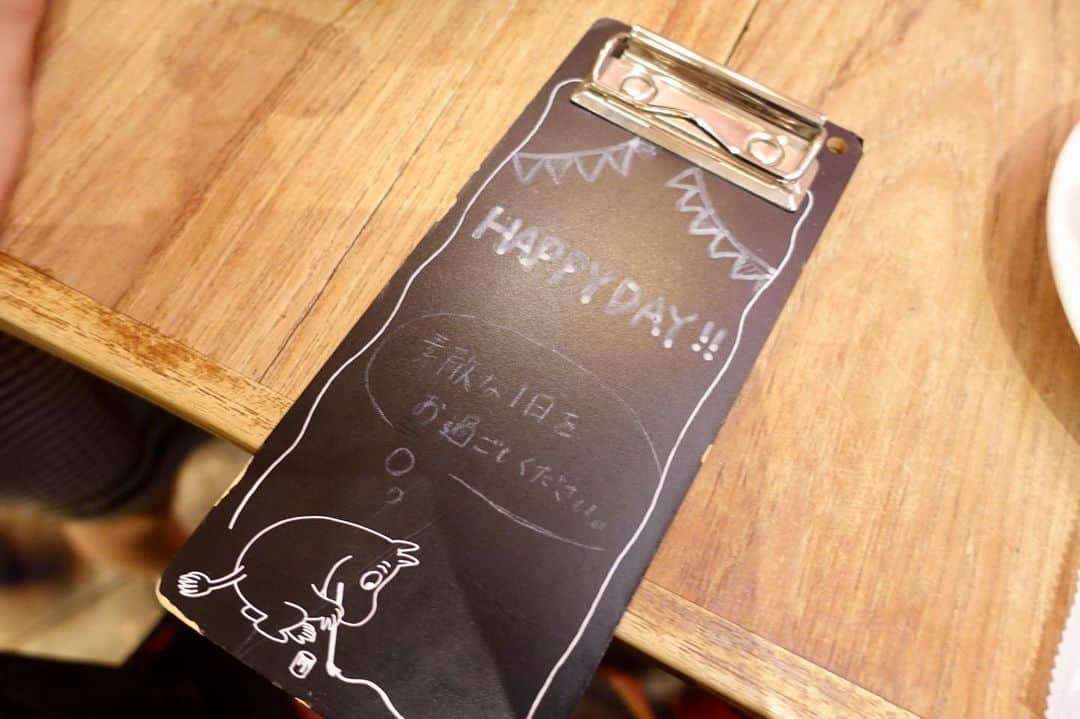 HAPPY DAY!!
素敵な1日を
お過ごしください。